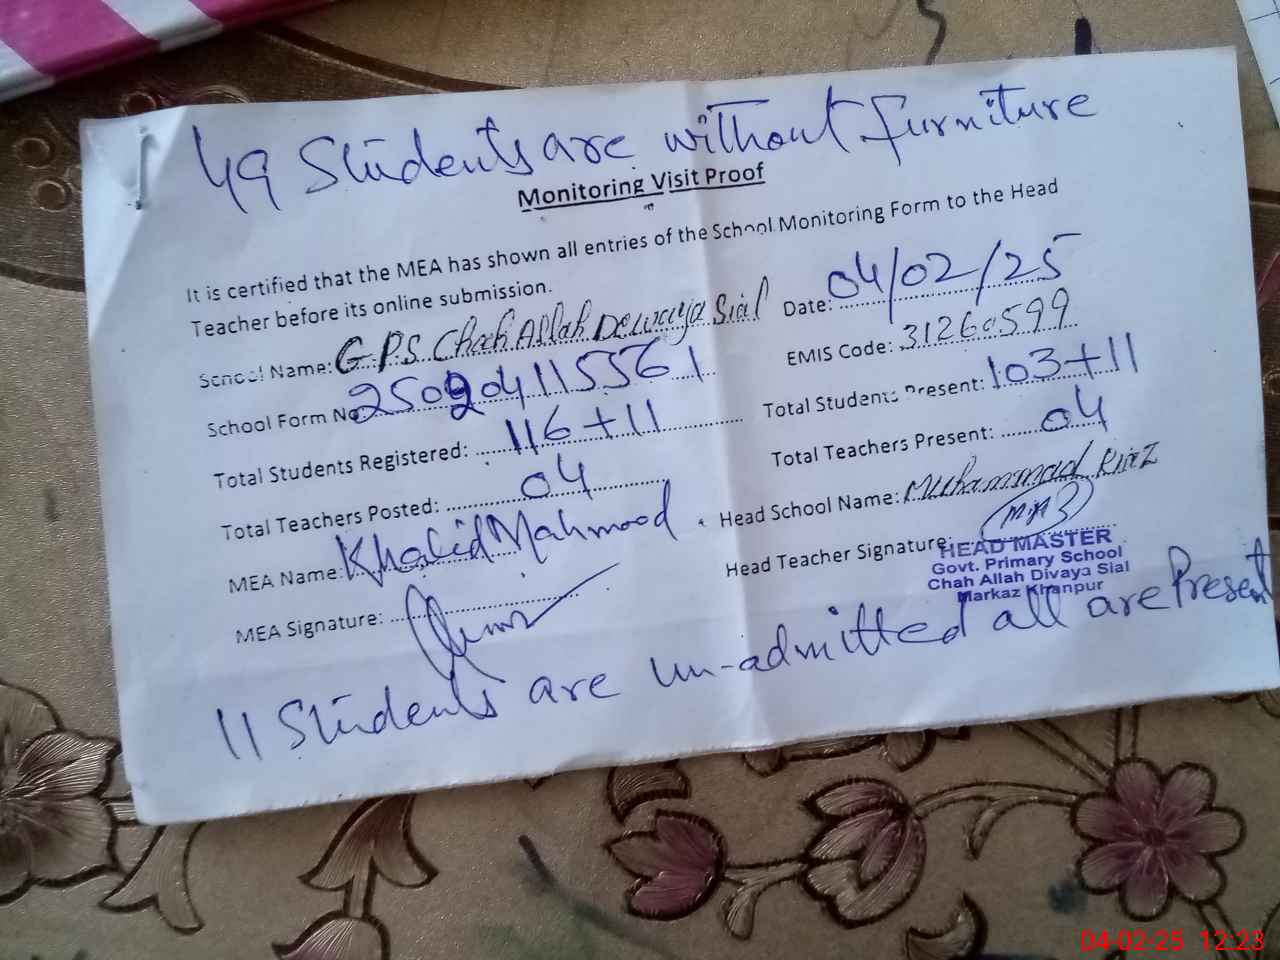 49 Students are without furniture
Monitoring Visit Proof
It is certified that the MEA has shown all entries of the School Monitoring Form to the Head
Teacher before its online submission.
School Name: GPS Chah Allah Dewaya Sial Date: 04/02/25
School Form No 250204115561 EMIS Code: 31260599
Total Students Registered: 116+11 Total Students Present: 103+11
Total Teachers Posted: 04 Total Teachers Present: 04
MEA Name: Khalid Mahmood Head School Name: Muhammad
MEA Signature: Head Teacher Signature:
HEAD MASTER
Govt. Primary School
Chah Allah Divaya Sial
Markaz Khanpur
11 Students are un-admitted all are Present
04-02-25 12:23